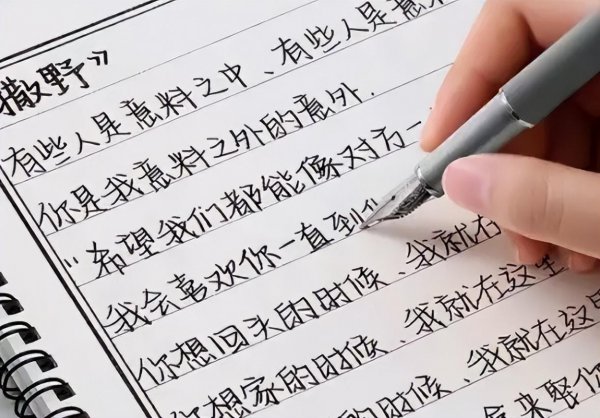 撒野》
有些人是意料之中、有些人是意
你是我意料之外的意外.
"希望我们都能像对方一
我会喜欢你一直到
你想回头的时候、我就在
你想家的时候、我就在这里
我就在这
会来娶你